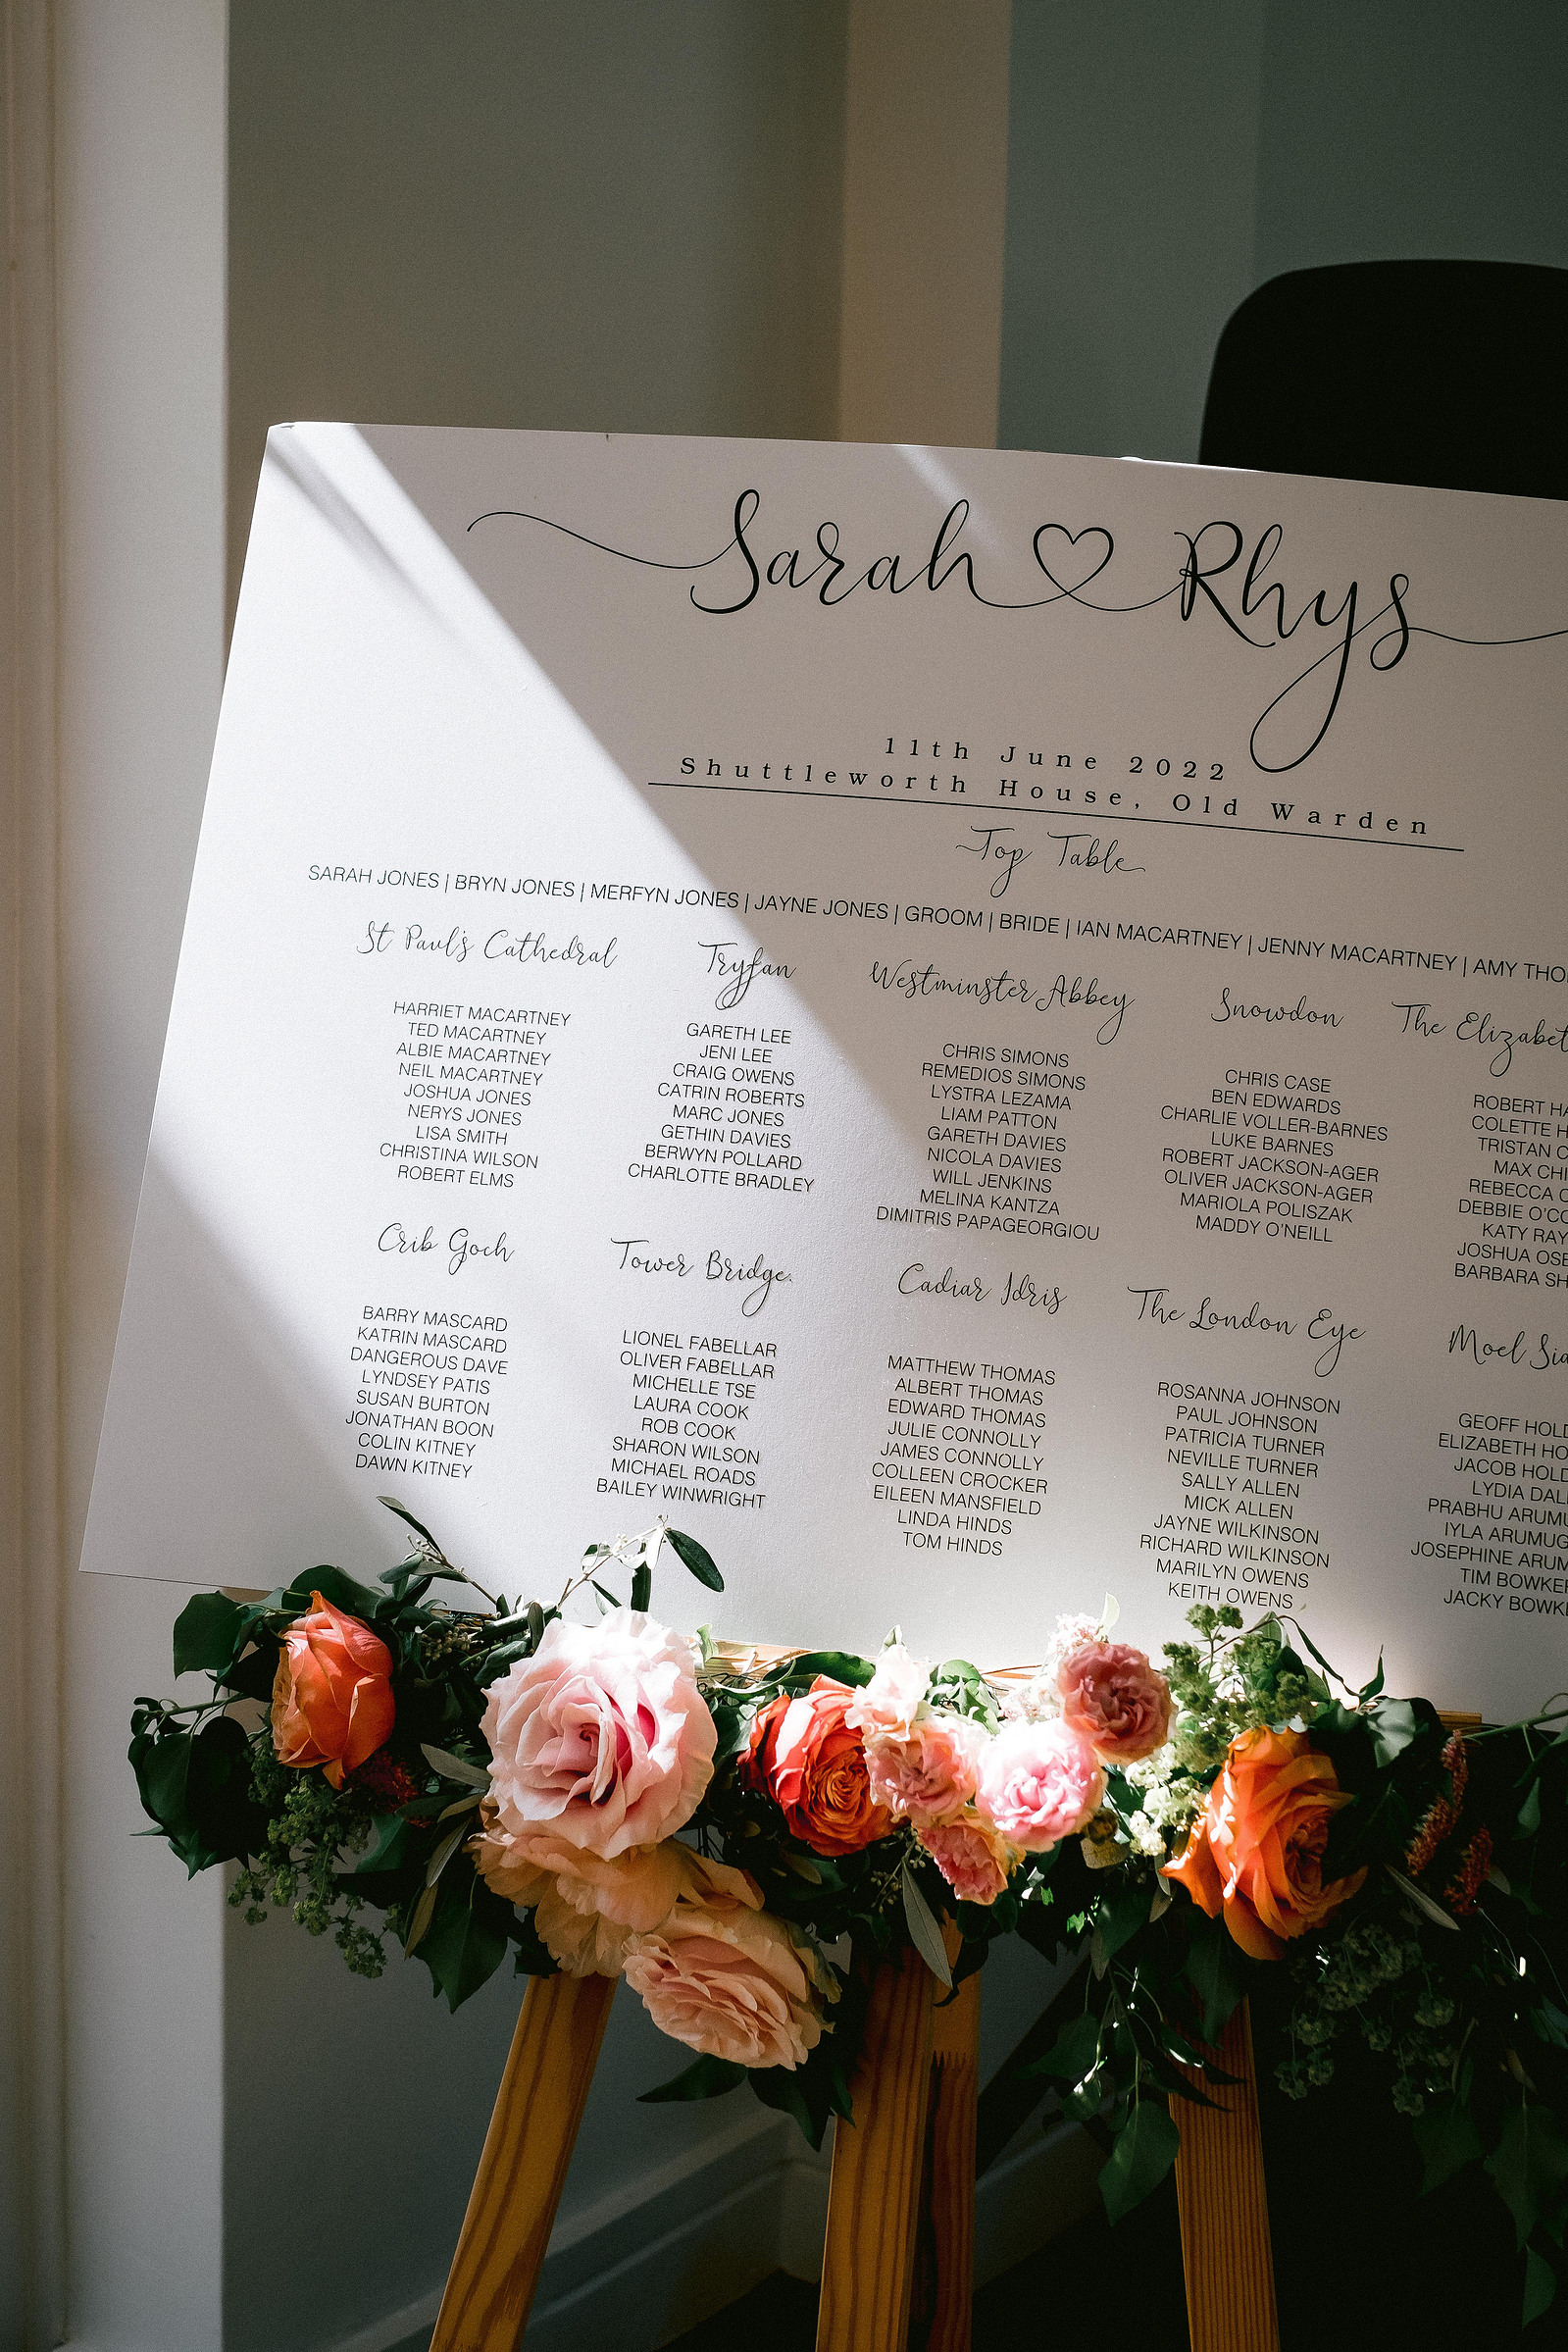 Sarah Rhys
11th June 2022
Shuttleworth House, Old Warden
Top Table
SARAH JONES | BRYN JONES | MERFYN JONES | JAYNE JONES | GROOM | BRIDE | IAN MACARTNEY | JENNY MACARTNEY | AMY THO
St Paul's Cathedral
HARRIET MACARTNEY
TED MACARTNEY
ALBIE MACARTNEY
NEIL MACARTNEY
JOSHUA JONES
NERYS JONES
LISA SMITH
CHRISTINA WILSON
ROBERT ELMS
Tryfan
GARETH LEE
JENI LEE
CRAIG OWENS
CATRIN ROBERTS
MARC JONES
GETHIN DAVIES
BERWYN POLLARD
CHARLOTTE BRADLEY
Westminster Abbey
CHRIS SIMONS
REMEDIOS SIMONS
LYSTRA LEZAMA
LIAM PATTON
GARETH DAVIES
NICOLA DAVIES
WILL JENKINS
MELINA KANTZA
DIMITRIS PAPAGEORGIOU
Snowdon
CHRIS CASE
BEN EDWARDS
CHARLIE VOLLER-BARNES
LUKE BARNES
ROBERT JACKSON-AGER
OLIVER JACKSON-AGER
MARIOLA POLISZAK
MADDY O'NEILL
The Elizabet
ROBERT HA
COLETTE H
TRISTAN C
MAX CHI
REBECCA C
DEBBIE O'CO
KATY RAY
JOSHUA OSE
BARBARA SH
Crib Goch
BARRY MASCARD
KATRIN MASCARD
DANGEROUS DAVE
LYNDSEY PATIS
SUSAN BURTON
JONATHAN BOON
COLIN KITNEY
DAWN KITNEY
Tower Bridge.
LIONEL FABELLAR
OLIVER FABELLAR
MICHELLE TSE
LAURA COOK
ROB COOK
SHARON WILSON
MICHAEL ROADS
BAILEY WINWRIGHT
Cadiar Idris
MATTHEW THOMAS
ALBERT THOMAS
EDWARD THOMAS
JULIE CONNOLLY
JAMES CONNOLLY
COLLEEN CROCKER
EILEEN MANSFIELD
LINDA HINDS
TOM HINDS
The London Eye
ROSANNA JOHNSON
PAUL JOHNSON
PATRICIA TURNER
NEVILLE TURNER
SALLY ALLEN
MICK ALLEN
JAYNE WILKINSON
RICHARD WILKINSON
MARILYN OWENS
KEITH OWENS
Moel Sia
GEOFF HOLD
ELIZABETH HO
JACOB HOLD
LYDIA DAL
PRABHU ARUMU
IYLA ARUMUG
JOSEPHINE ARUM
TIM BOWKE
JACKY BOWK